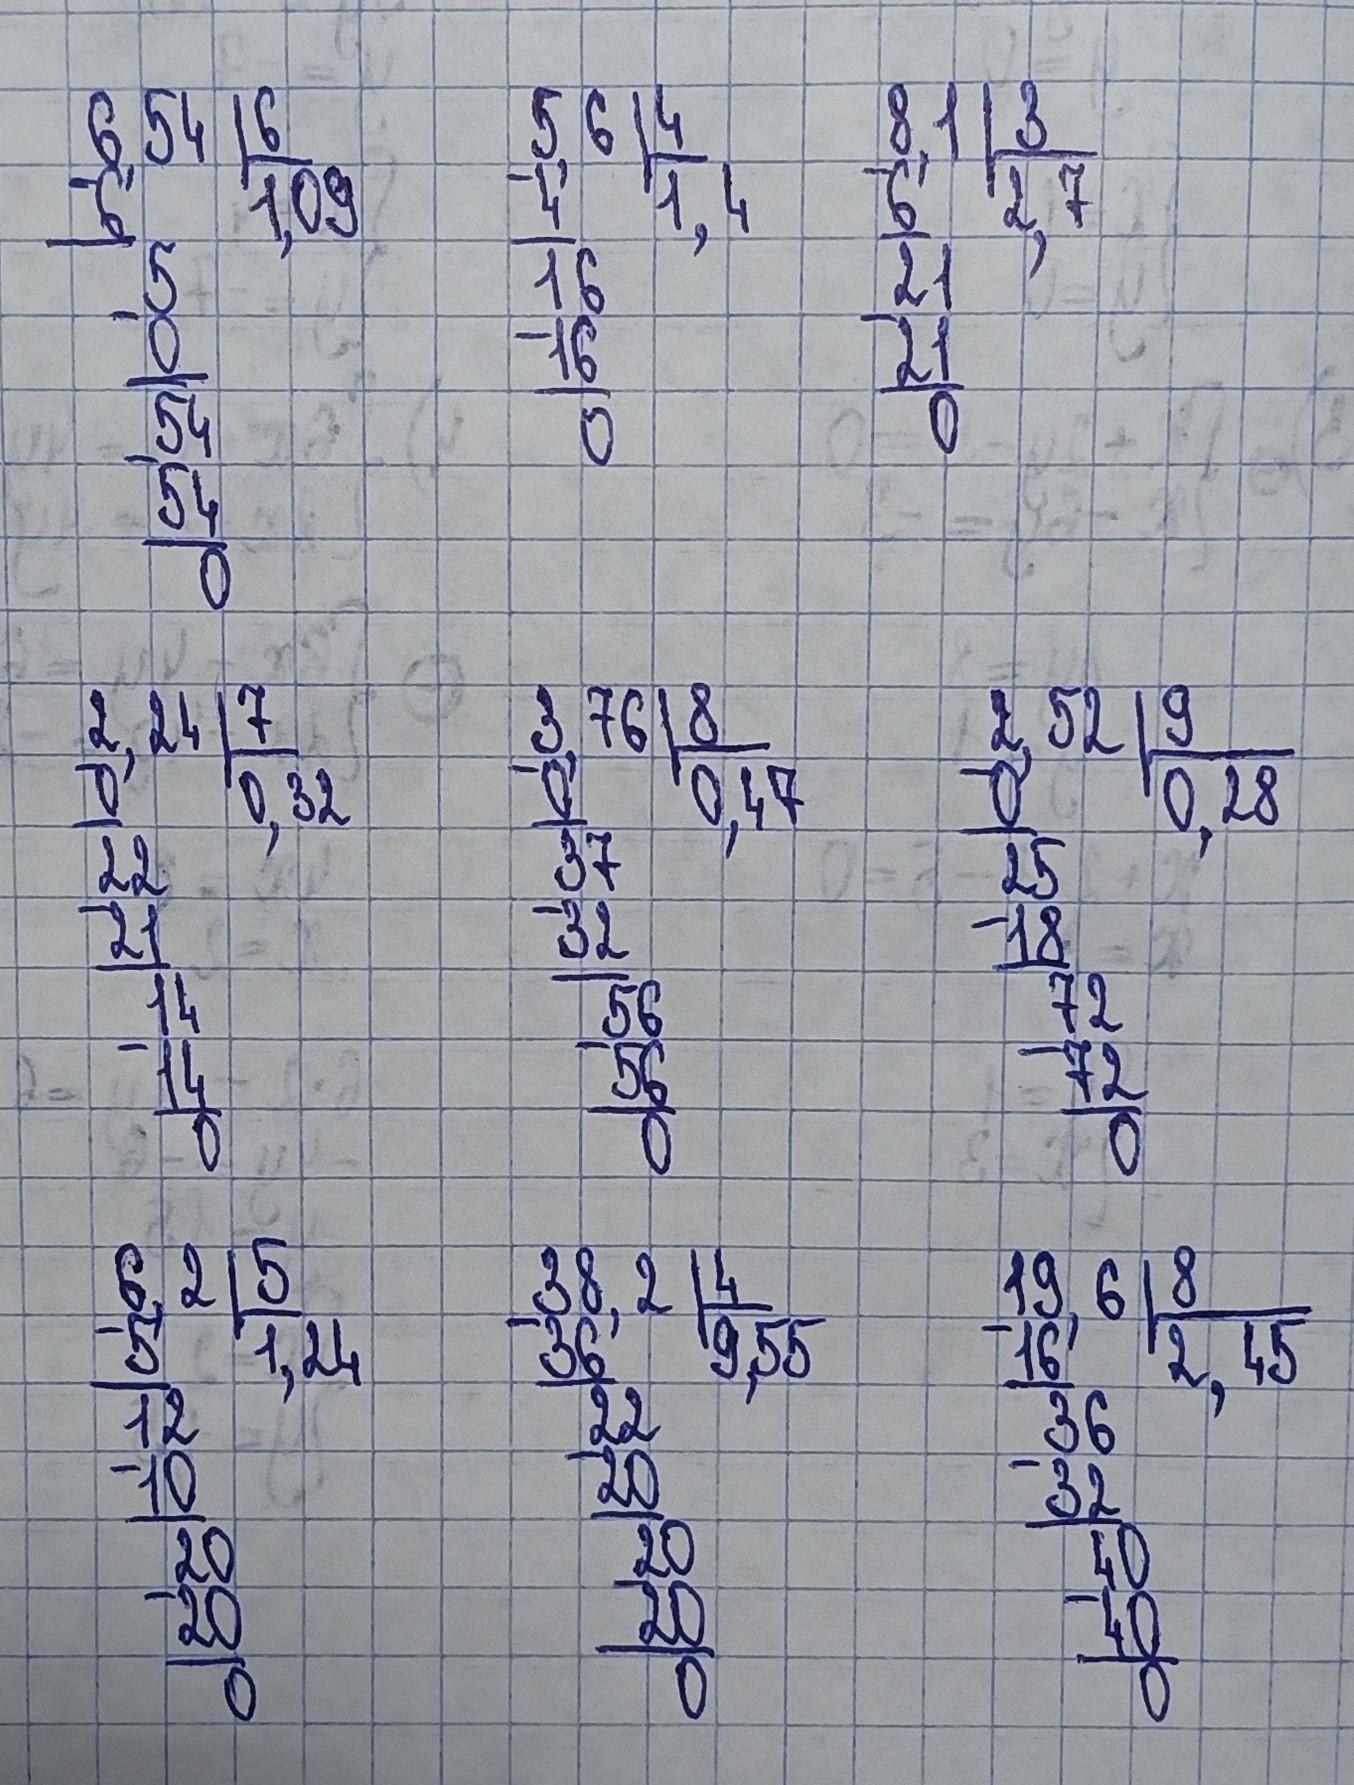 6,54 6 5,6 4 8,1 3
-6 1,09 -4 1,4 -6 2,7
5 16 21
-0 -16 -21
54 0 0
-54
0
2,24 7 3,76 8 2,52 9
-0 0,32 -0 0,47 -0 0,28
22 37 25
-21 -32 -18
14 56 72
-14 -56 -72
0 0 0
6,2 5 38,2 4 19,6 8
-5 1,24 -36 9,55 -16 2,45
12 22 36
-10 -20 -32
20 20 40
-20 -20 -40
0 0 0